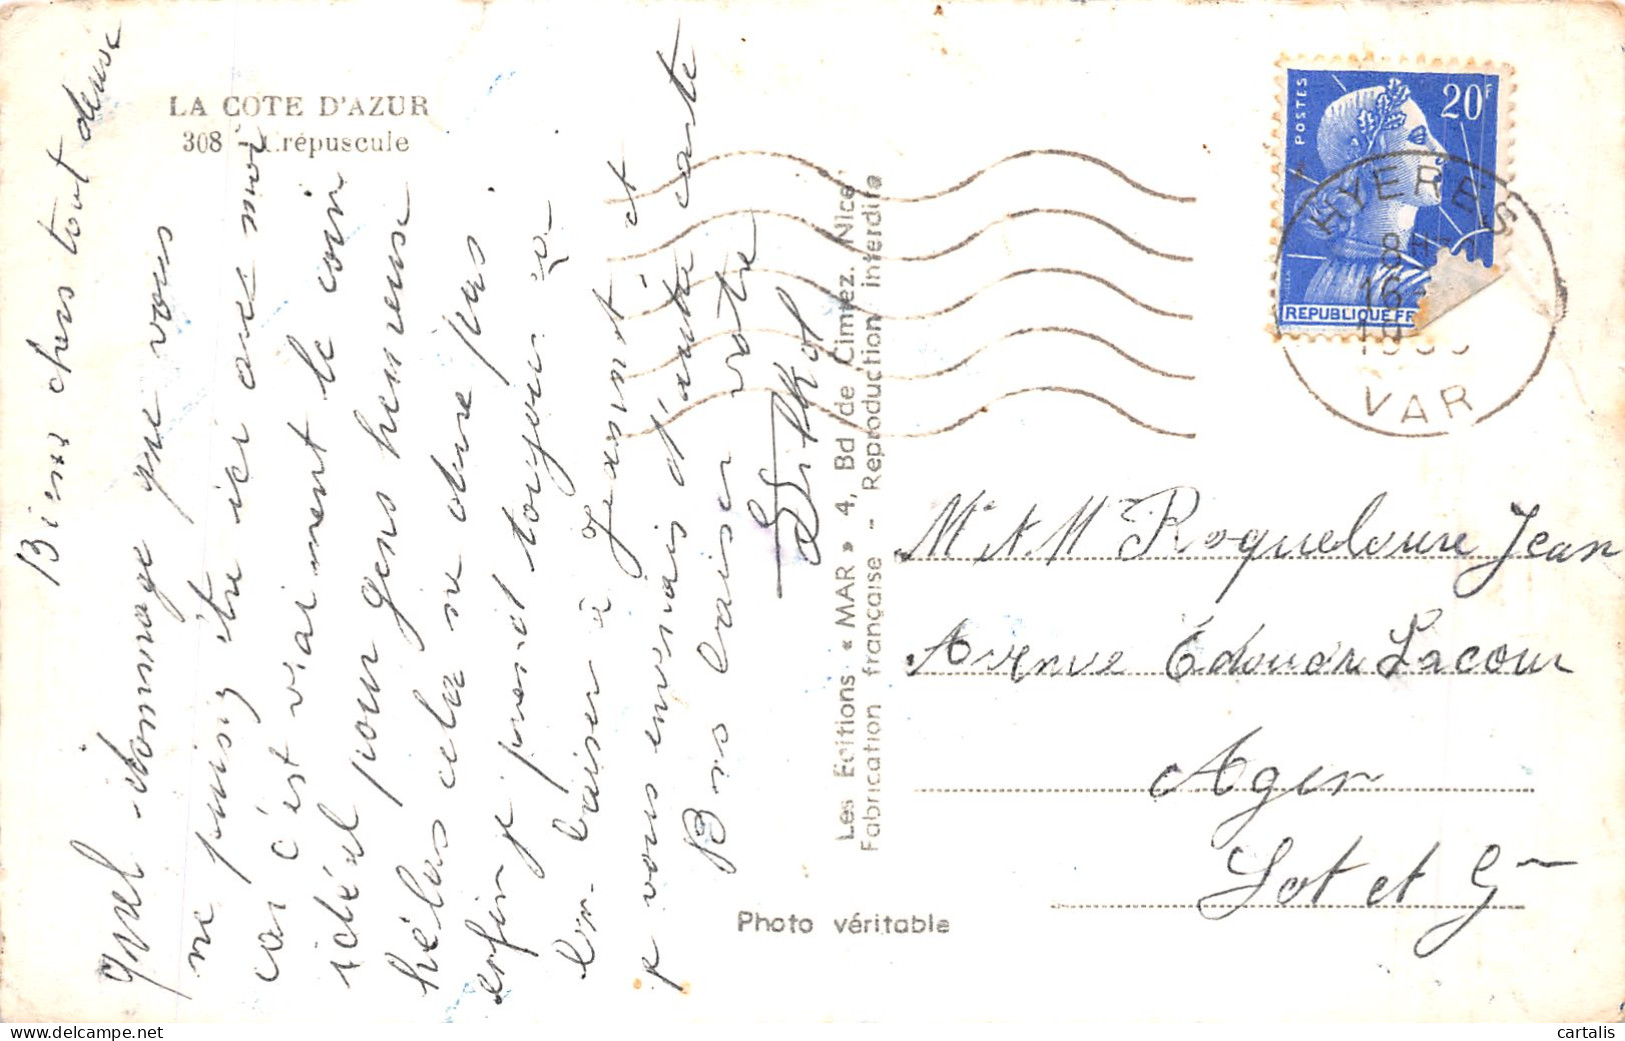 LA COTE D'AZUR
308 - Crépuscule
Biens chers tout deux
Quel dommage que vous
ne puissiez être ici avec moi
car c'est vraiment le coin
idéal pour gens heureux
hélas cela ne dure pas
enfin je prend toujours
bon baiser à Jeannot et
je vous envoies d'autre carte
Bons baiser votre
Les Editions « MAR » 4, Bd de Cimiez. Nice
Fabrication française - Reproduction interdite
Photo véritable
POSTES
20F
REPUBLIQUE FR
HYERES
8H
16-
VAR
Mr & M Roquelaure Jean
Avenue Édouard Lacour
Agen
Lot et Gne
cartalis.com